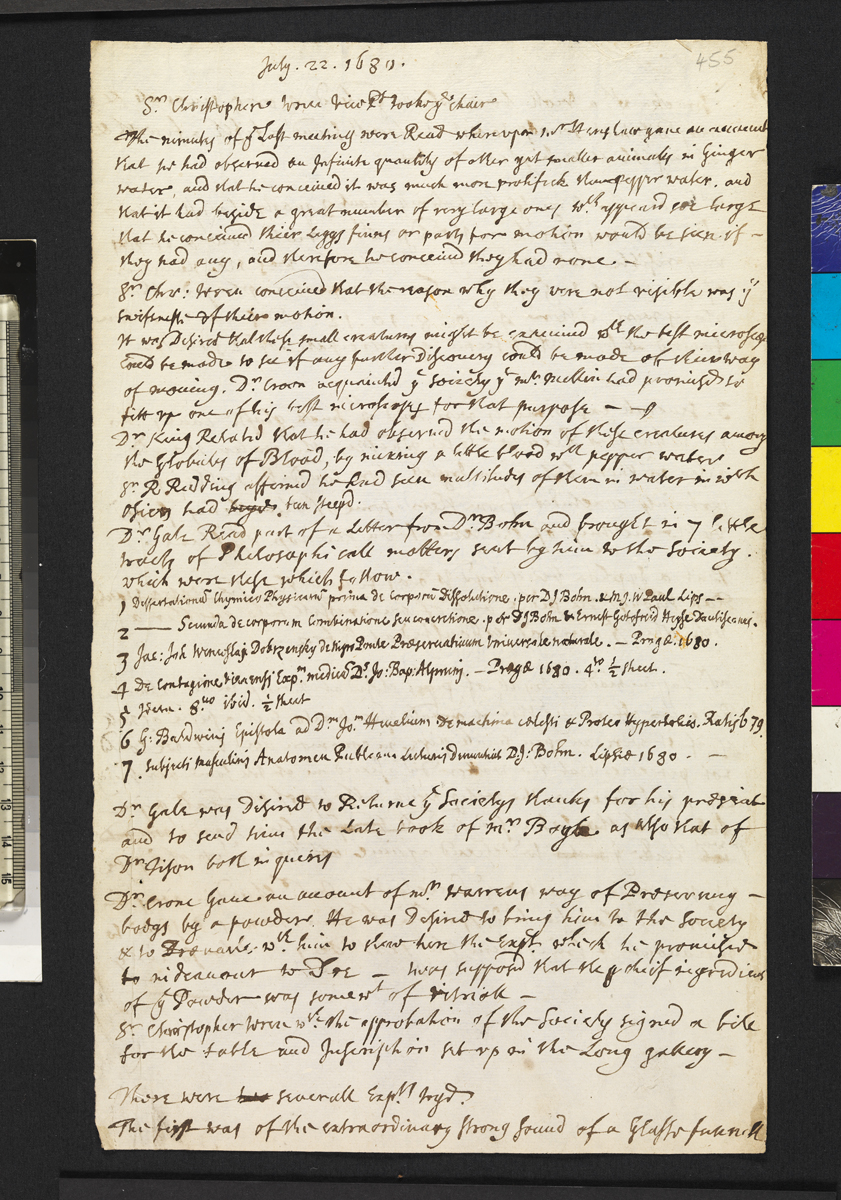 455
July. 22. 1680.
Sr. Christopher Wren Vice Pt tooke ye chair
The minutes of ye Last meeting were Read whereupon mr Henshaw gave an account
that he had observed an Infinite quantity of other yet smaller animalls in Ginger
water, and that he conceived it was much more prolifick than pepper water. and
that it had beside a great number of very large ones wch appeard soe large
that he conceived their Leggs finns or parts for motion would be seen if -
they had any, and therefore he conceived they had none. -
Sr. Chr: Wren conceived that the reason why they were not visible was ye
swiftnesse of their motion.
It was Desired that these small creatures might be examined wth the best microscope
could be made to see if any further discovery could be made of their way
of moving. Dr. Croon acquainted ye society yt mr. mellin had promised to
fitt up one of his best microscopes for that purpose -
Dr. King Related that he had observed the motion of these creatures among
the Globules of Blood, by mixing a little blood wth pepper water
Sr. R Redding affirmed he had seen multitudes of them in water in wch
Osiers had been steepd.
Dr. Gale Read part of a Letter from Dr. Bohn and brought in 7 little
tracts of Philosophicall matters sent by him to the Society.
which were these which follow.
1 Dissertationum Chymico Physicarum prima de corporum Dissolutione. per DJ Bohn. & MJ. W Paul Lips -
2 —— Secunda de corporum Combinatione seu concretione. per DJ Bohn & Ernest Gotofrid Heyse Dantiscanus.
3 Jac: Joh Wenceslaj Dobrzensky de Nigro Ponte Præservativum Universale naturale. - Pragæ. 1680.
4 De Contagione Viennensi Expm. medicum Ds. Jo: Bap: Alprunj. - Pragæ 1680. 4to. ½ Sheet.
5 Idem. 8uo ibid. ½ sheet
6 G: Baldwinj Epistola ad Dm. Jo. Hevelium De machina cælesti & Proteo Hyperbolico. Ratisb 79.
7. Subjecti masculinj Anatomen Publicam Lecturis Denuntiat DJ: Bohn. Lipsiæ 1680. -
Dr. Gale was Desired to Returne ye Societys thanks for his present
and to send him the Late book of mr. Boyle as also that of
Dr. Tison both in quires
Dr. Crone Gave an account of mr. warrens way of Preserving -
bodys by a powder. He was Desired to bring him to the Society
& to wth him to shew here the Expt. which he promised
to indeavour to Doe - twas supposd that the cheif ingredient
of ye Powder was somewt of vitriall -
Sr. Christopher Wren wth. the approbation of the Society signed a bill
for the table and Inscription set up in the Long gallery -
There were severall Expts tryd.
The first was of the extraordinary strong sound of a Glasse funnell